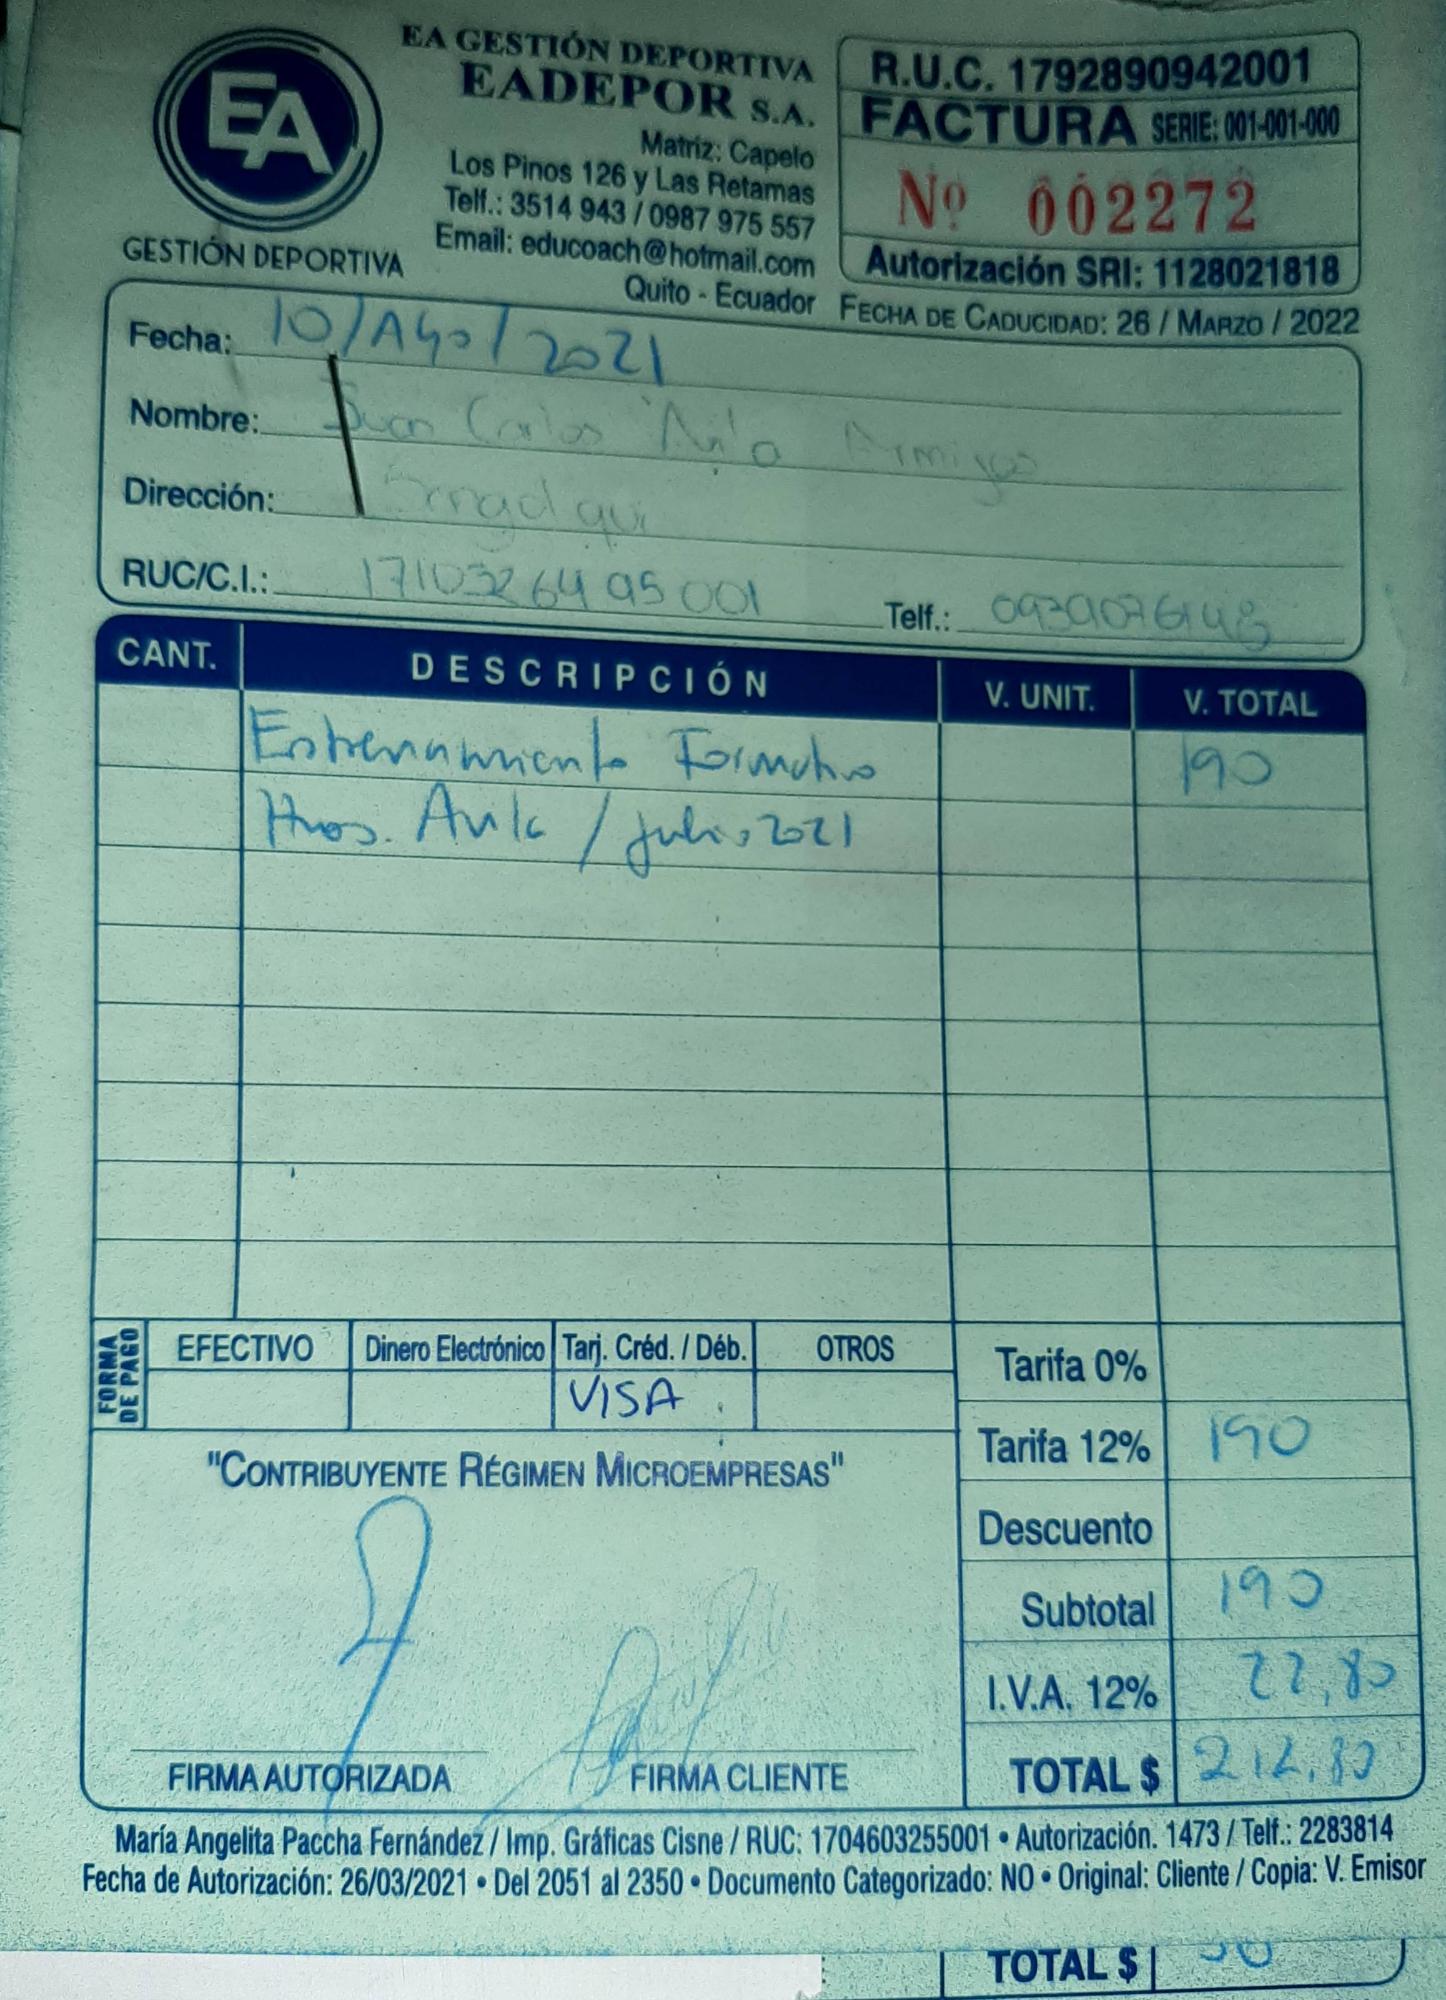 EA
GESTIÓN DEPORTIVA
EA GESTIÓN DEPORTIVA
EADEPOR S.A.
Matriz: Capelo
Los Pinos 126 y Las Retamas
Telf.: 3514 943 / 0987 975 557
Email: educoach@hotmail.com
Quito - Ecuador
R.U.C. 1792890942001
FACTURA SERIE: 001-001-000
Nº 002272
Autorización SRI: 1128021818
FECHA DE CADUCIDAD: 26 / MARZO / 2022
Fecha: 10/Ago/2021
Nombre: Juan Carlos Avila Armijos
Dirección: Sangolqui
RUC/C.I.: 1710326495001 Telf.:
CANT. DESCRIPCIÓN V. UNIT. V. TOTAL
Entrenamiento Formativo 190
Hnos. Avila / julio 2021
FORMA DE PAGO
EFECTIVO Dinero Electrónico Tarj. Créd. / Déb. OTROS
VISA
Tarifa 0%
Tarifa 12% 190
Descuento
Subtotal 190
I.V.A. 12% 22,80
TOTAL $ 212,80
"CONTRIBUYENTE RÉGIMEN MICROEMPRESAS"
FIRMA AUTORIZADA FIRMA CLIENTE
María Angelita Paccha Fernández / Imp. Gráficas Cisne / RUC: 1704603255001 • Autorización. 1473 / Telf.: 2283814
Fecha de Autorización: 26/03/2021 • Del 2051 al 2350 • Documento Categorizado: NO • Original: Cliente / Copia: V. Emisor
TOTAL $